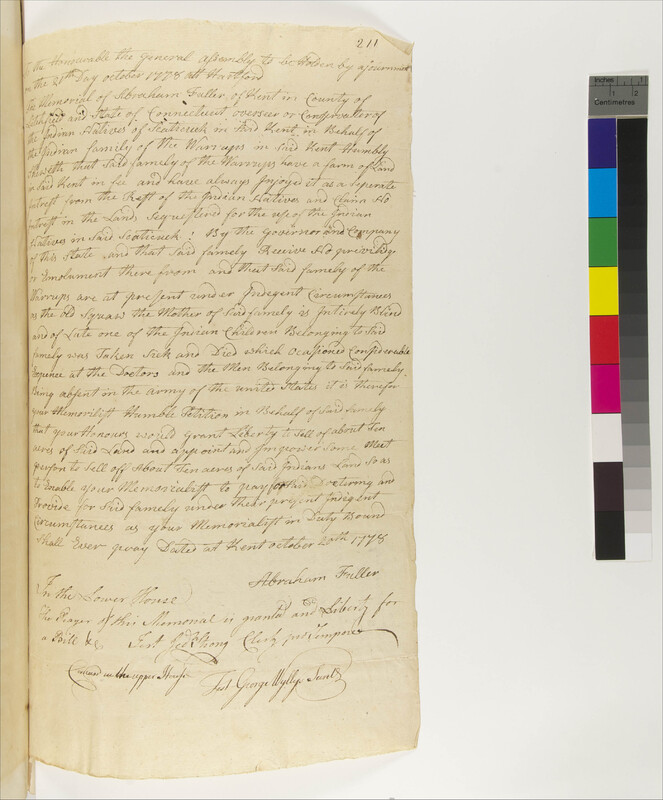 211
the Honourable the General Assembly to be Holden by ajournment
on the 21th Day october 1778 att Hartford
the Memorial of Abraham Fuller, of Kent in County of
Litchfield and State of Connecticut, overseer or Conservator of
the Indian Natives of Scaticuck in Said Kent, in Behalf of
the Indian family of the Warrups in said Kent Humbly
Sheweth that Said family of the Warrups have a farm of Land
in said Kent in fee and have always Injoyed it as a Seperate
Intrest from the Rest of the Indian Natives and Claim No
Intrest in the Land Sequestered for the use of the Indian
Natives in Said Scaticuck : By the Governor and Company
of this State and that Said famely Receive No priviledge
or Emolument there from and that Said famely of the
Warrups are at present under Indegent Circumstances
as the old Squaw the Mother of Said famely is Intirely Blind
and of Late one of the Indian Children Belonging to Said
famely was Taken Sick and Died which Ocasioned Considerable
Expence at the Doctors and the Men Belonging to Said famely.
Being absent in the Army of the united States it is therefor
your Memorilist Humble Petition in Behalf of Said famely
that your Honours would Grant Liberty to Sell of about Ten
acres of Said Land and appoint and Impower Some Meet
person to Sell off About Ten acres of Said Indians Land So as
to Enable your Memorialist to pay Doctoring and
Provide for Said famely under thear present Indigent
Circumstances as your Memorialist in Duty Bound
Shall Ever pray Dated at Kent october 20th 1778
Abraham Fuller
In the Lower House
The Prayer of this Memorial is granted and Liberty for
a Bill &c Test Jedh Strong Clerk pro Tempore
Concurred in the upper House
Test George Wyllys Secret
Inches
1
2
Centimetres